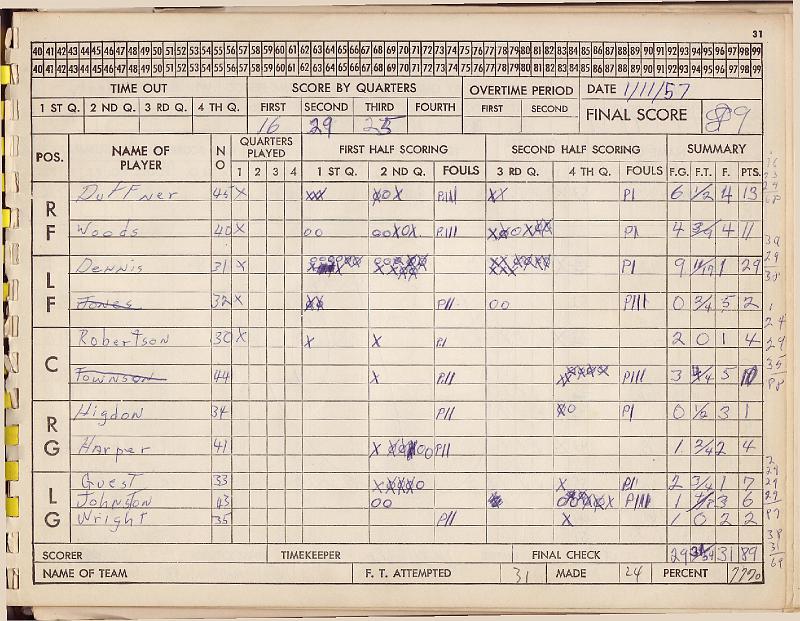 31
40 41 42 43 44 45 46 47 48 49 50 51 52 53 54 55 56 57 58 59 60 61 62 63 64 65 66 67 68 69 70 71 72 73 74 75 76 77 78 79 80 81 82 83 84 85 86 87 88 89 90 91 92 93 94 95 96 97 98 99
40 41 42 43 44 45 46 47 48 49 50 51 52 53 54 55 56 57 58 59 60 61 62 63 64 65 66 67 68 69 70 71 72 73 74 75 76 77 78 79 80 81 82 83 84 85 86 87 88 89 90 91 92 93 94 95 96 97 98 99
TIME OUT SCORE BY QUARTERS OVERTIME PERIOD DATE 1/11/57
1 ST Q. 2 ND Q. 3 RD Q. 4 TH Q. FIRST SECOND THIRD FOURTH FIRST SECOND FINAL SCORE 89
16 29 25
POS. NAME OF PLAYER NO QUARTERS PLAYED FIRST HALF SCORING SECOND HALF SCORING SUMMARY
1 2 3 4 1 ST Q. 2 ND Q. FOULS 3 RD Q. 4 TH Q. FOULS F.G. F.T. F. PTS.
RF Duffner 45 X XXX XOX PIII XX PI 6 1/2 4 13
Woods 40 X OO OOXOX PIII PI 4 3/9 4 11
LF Dennis 31 X PI 9 11/19 1 29
Jones 32 X XX PII OO PIIII 0 3/4 5 2
C Robertson 30 X X X PI 2 0 1 4
Townson 44 X PII PIII 3 4/4 5 10
RG Higdon 34 PII XO PI 0 1/2 3 1
Harper 41 PII 1 3/4 2 4
LG Guest 33 X PI 2 3/4 1 7
Johnston 43 OO PIIII 1 3 6
Wright 35 PII X 1 0 2 2
SCORER TIMEKEEPER FINAL CHECK 29 31 89
NAME OF TEAM F. T. ATTEMPTED 31 MADE 24 PERCENT 77%